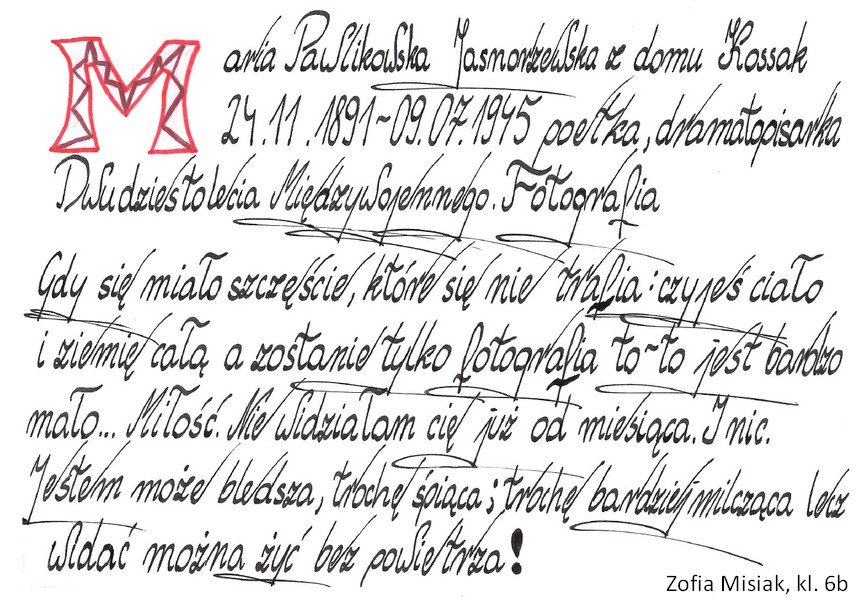 Maria Pawlikowska Jasnorzewska z domu Kossak
24.11.1891-09.07.1945 poetka, dramatopisarka
Dwudziestolecia Międzywojennego. Fotografia
Gdy się miało szczęście, które się nie trafia: czyjeś ciało
i ziemię całą, a zostanie tylko fotografia to~to jest bardzo
mało... Miłość. Nie widziałam cię już od miesiąca. I nic.
Jestem może bledsza, trochę śpiąca; trochę bardziej milcząca lecz
widać można żyć bez powietrza!
Zofia Misiak, kl. 6b